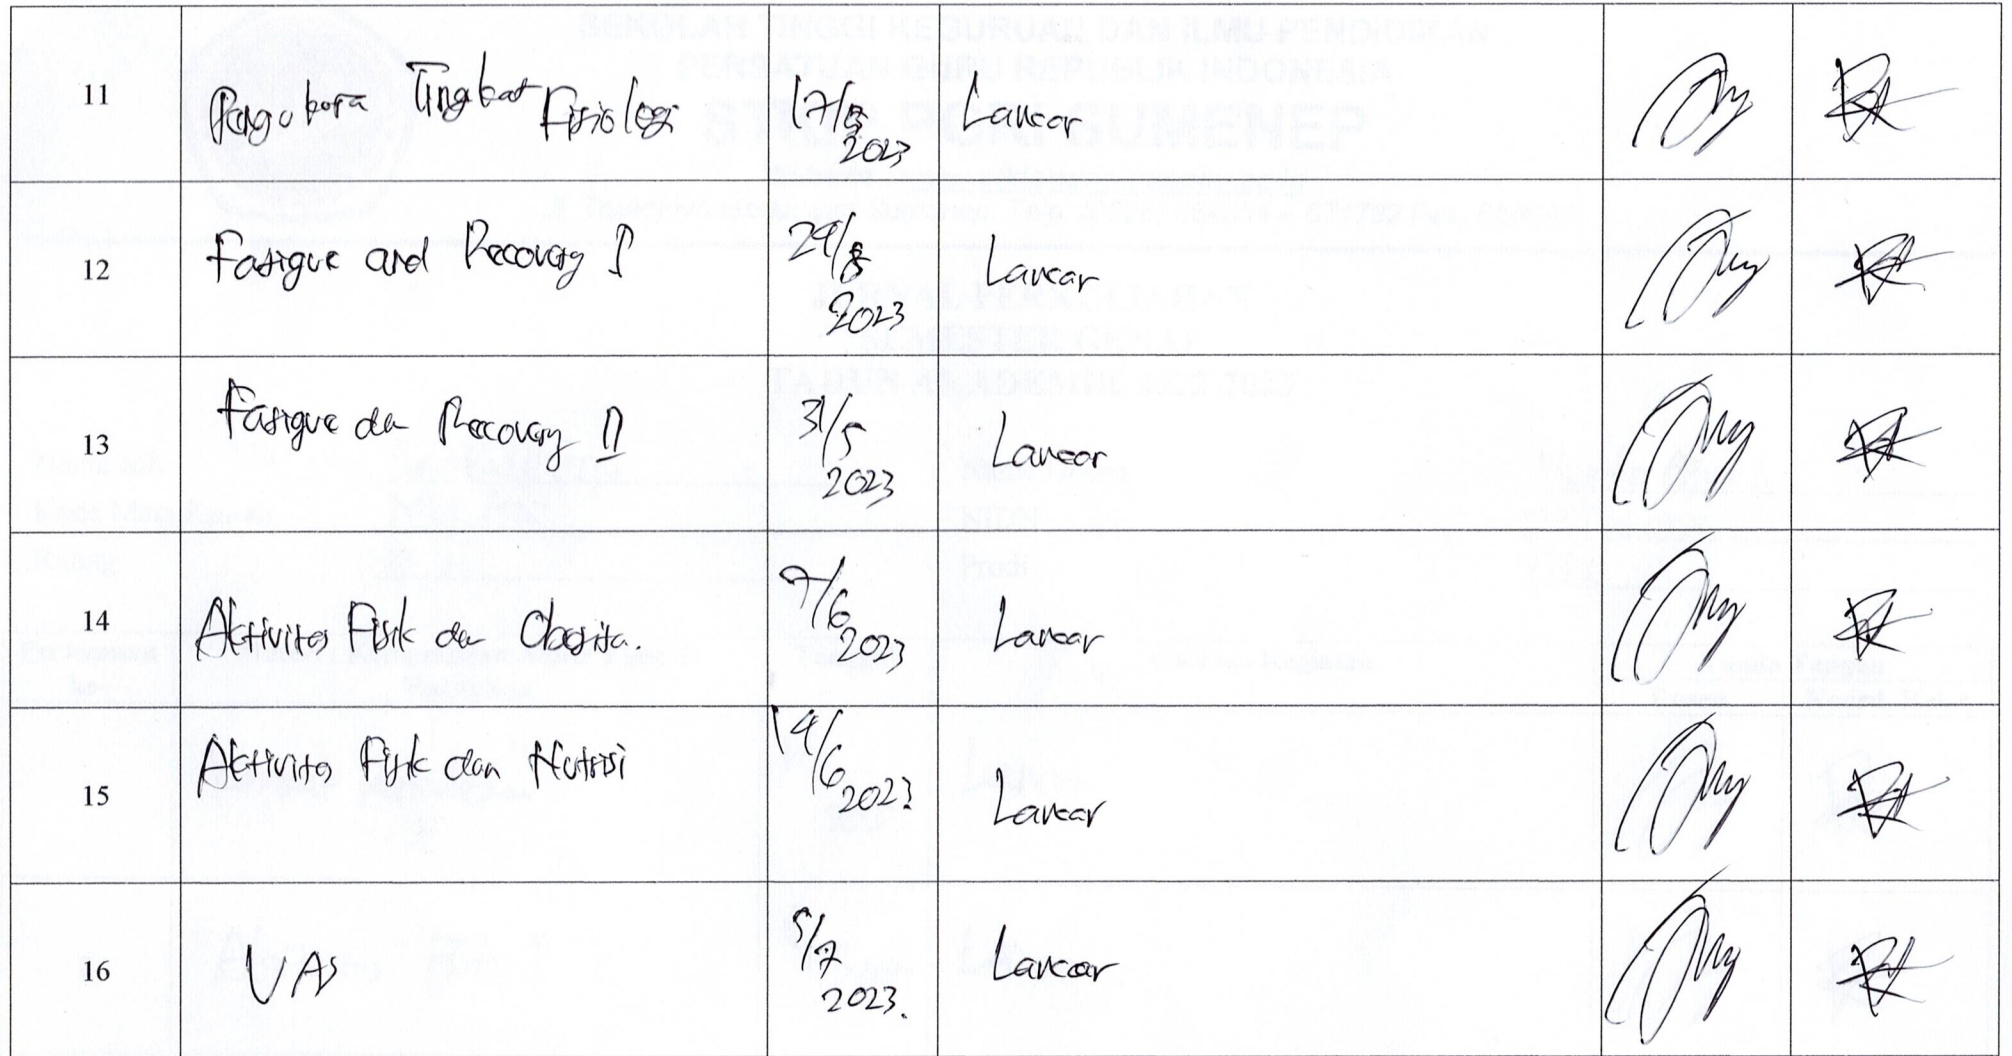 11 Tingkat Fisiologi 17/5 2023 Lancar
12 Fatigue and Recovery I 24/5 2023 Lancar
13 Fatigue dan Recovery II 31/5 2023 Lancar
14 Aktivitas Fisik dan Obesitas. 7/6 2023 Lancar
15 Aktivitas Fisik dan Nutrisi 14/6 2023 Lancar
16 UAS 5/7 2023. Lancar